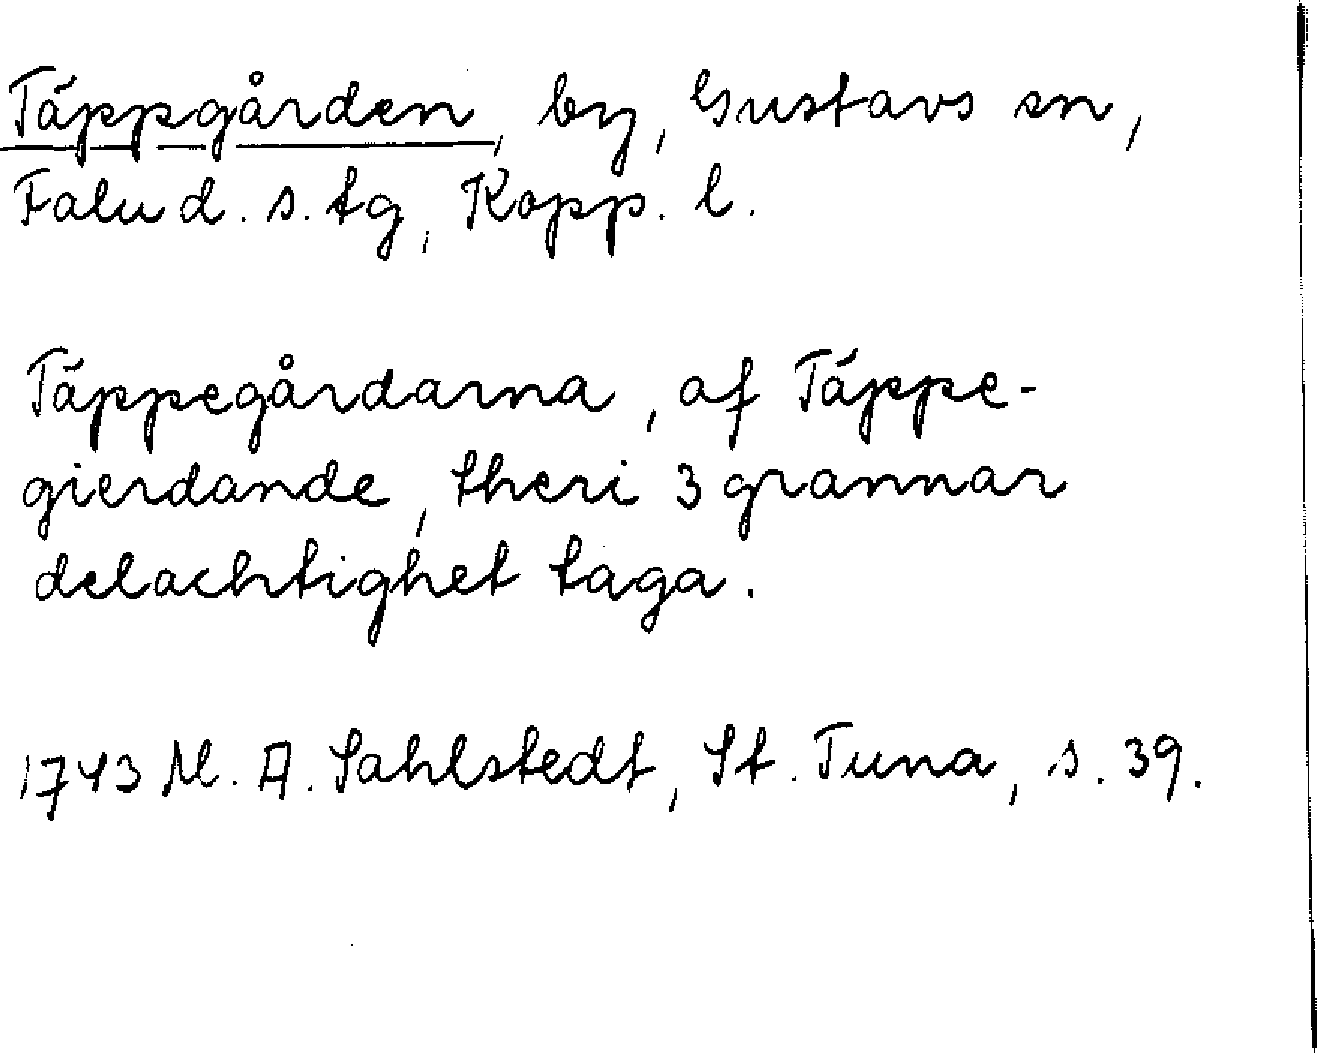 Täppgården, by, Gustavs sn,
Falu d. s. tg, Kopp. l.
Täppegårdarna, af Täppe-
gierdande, theri 3 grannar
delachtighet taga.
1743 M. A. Sahlstedt, St. Tuna, s. 39.